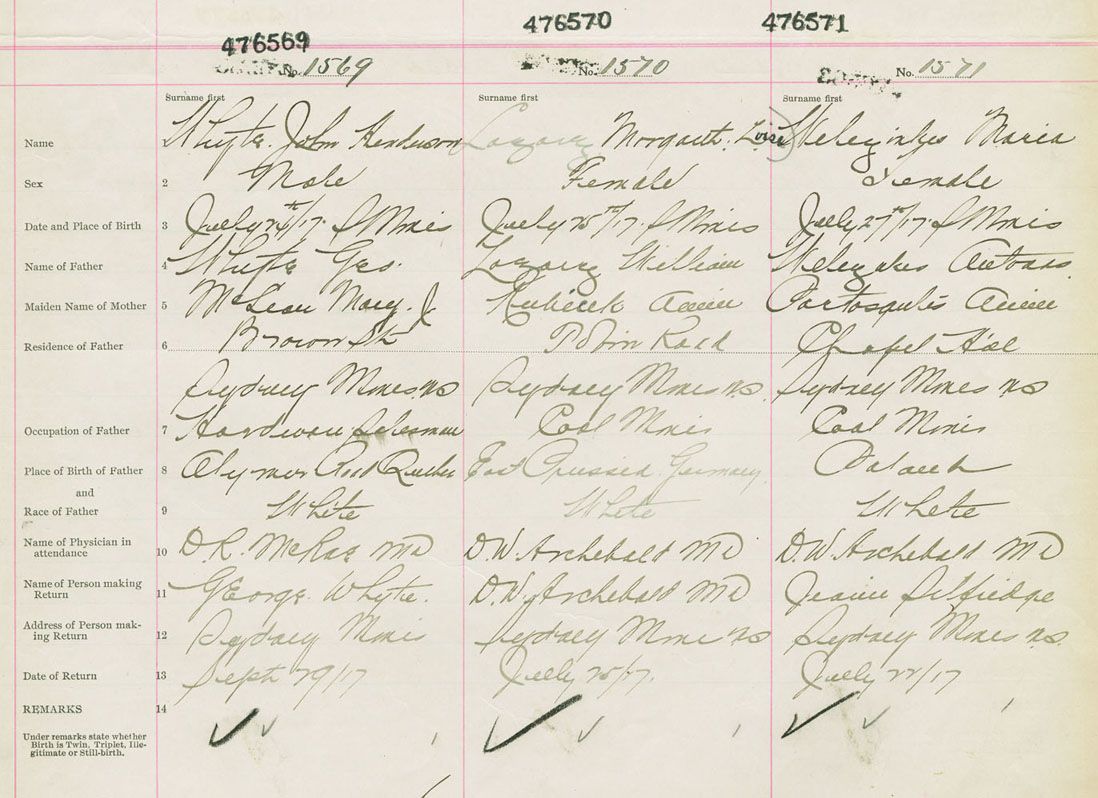 476569 476570 476571
No. 1569 No. 1570 No. 1571
Surname first Surname first Surname first
Name 1 Whyte. John Henderson Margaret. Maria
Sex 2 Male Female Female
Date and Place of Birth 3 July /17. S Mines July 25th/17. S Mines July 27th/17. S Mines
Name of Father 4 Whyte Geo. William
Maiden Name of Mother 5 McLean Mary. J Annie Annie
Residence of Father 6 Brown St Road Chapel Hill
Sydney Mines NS Sydney Mines NS. Sydney Mines NS
Occupation of Father 7 Hardware Salesman Coal Mines Coal Mines
Place of Birth of Father 8 East Prussia Germany
and
Race of Father 9 White White White
Name of Physician in
attendance 10 D.R. McRae MD D.W. Archebald MD D.W. Archebald MD
Name of Person making
Return 11 George Whyte. D.W. Archebald MD
Address of Person mak-
ing Return 12 Sydney Mines Sydney Mines NS Sydney Mines NS.
Date of Return 13 Sept 29/17 July 25/17. July /17
REMARKS 14
Under remarks state whether
Birth is Twin, Triplet, Ille-
gitimate or Still-birth.